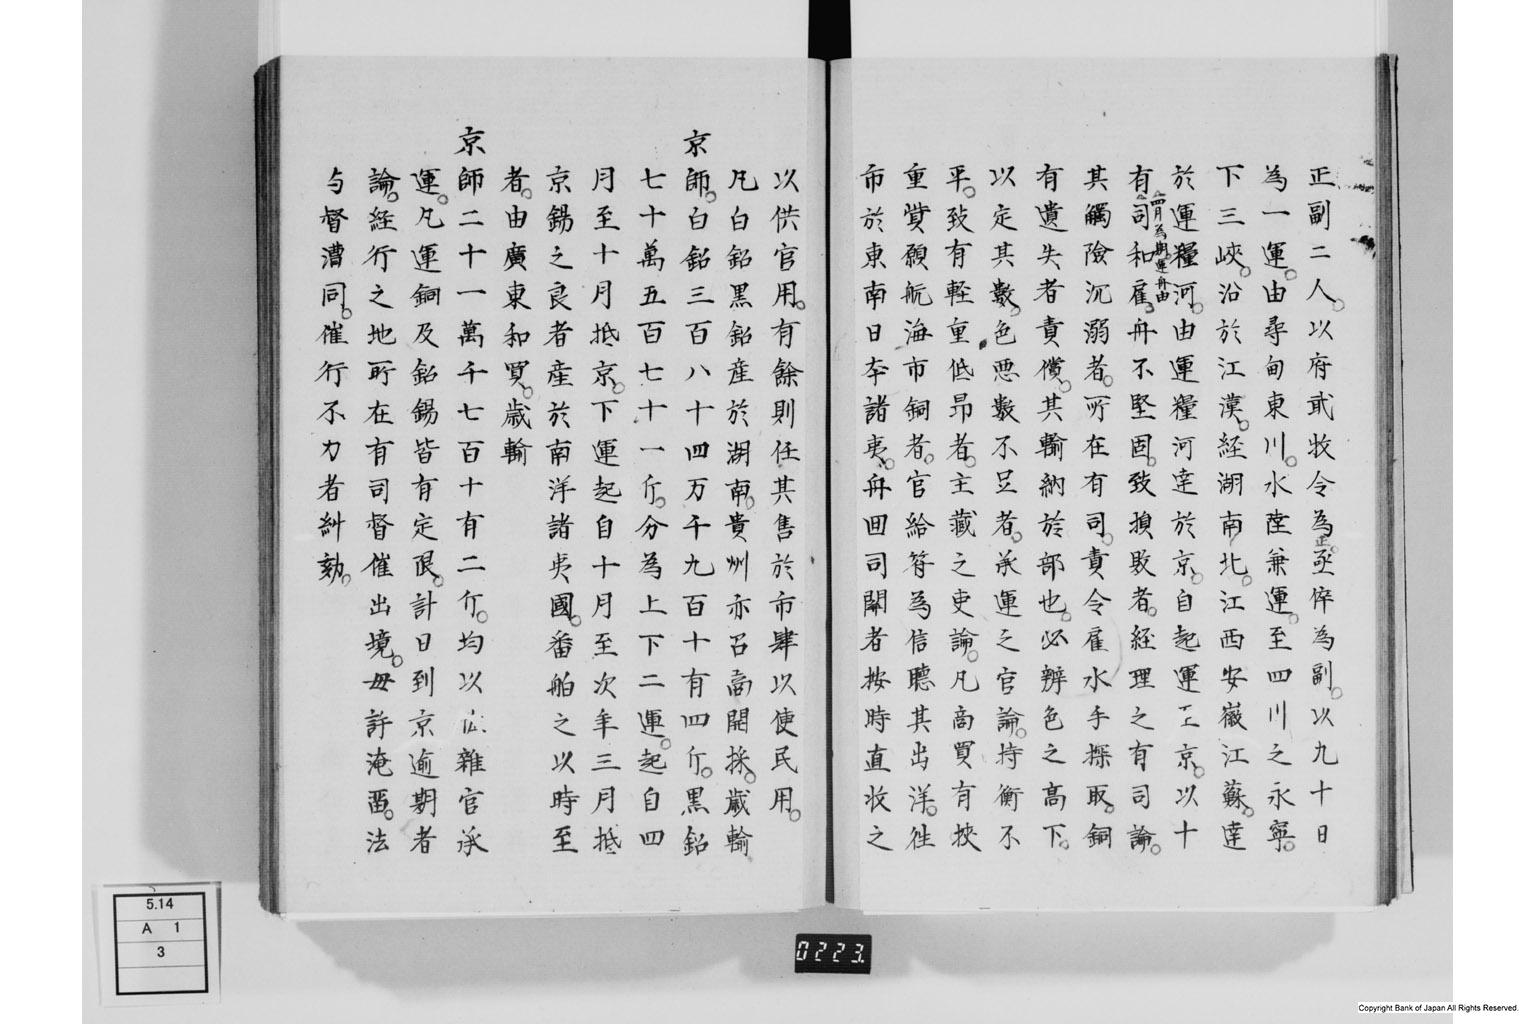 正副二人。以府貳牧令為正。丞倅為副。以九十日
為一運。由尋甸東川。水陸兼運。至四川之永寧。
下三峽。沿於江漢。經湖南北。江西安徽江蘇。達
於運糧河。由運糧河達於京。自起運至京。以十
四月為期。運舟由
有司和雇。舟不堅固。致損敗者。経理之有司論。
其觸險沉溺者。所在有司。責令雇水手探取。銅
有遺失者責償。其輸納於部也。必辨色之高下。
以定其數。色惡數不足者。承運之官論。持衡不
平。致有輕重低昂者。主藏之吏論。凡商買有挾
重貲願航海市銅者。官給符為信聽其出洋。往
市於東南日本諸夷。舟回司關者按時直收之
以供官用。有餘則任其售於市肆以使民用。
凡白鉛黒鉛産於湖南。貴州亦召商開採。歲輸
京師。白鉛三百八十四万千九百十有四斤。黒鉛
七十萬五百七十一斤。分為上下二運。起自四
月至十月抵京。下運起自十月至次年三月抵
京錫之良者産於南洋諸夷國。番舶之以時至
者。由廣東和買。歲輸
京師二十一萬千七百十有二斤。均以佐雜官承
運。凡運銅及鉛錫皆有定限。計日到京逾期者
論。経行之地所在有司督催出境。毋許淹畱。法
与督漕同。催行不力者糾劾。
5.14
A 1
3
0223.
Copyright Bank of Japan All Rights Reserved.